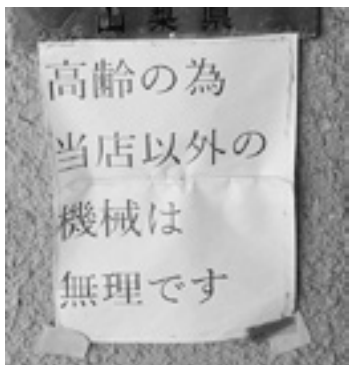 山梨県
高齢の為
当店以外の
機械は
無理です